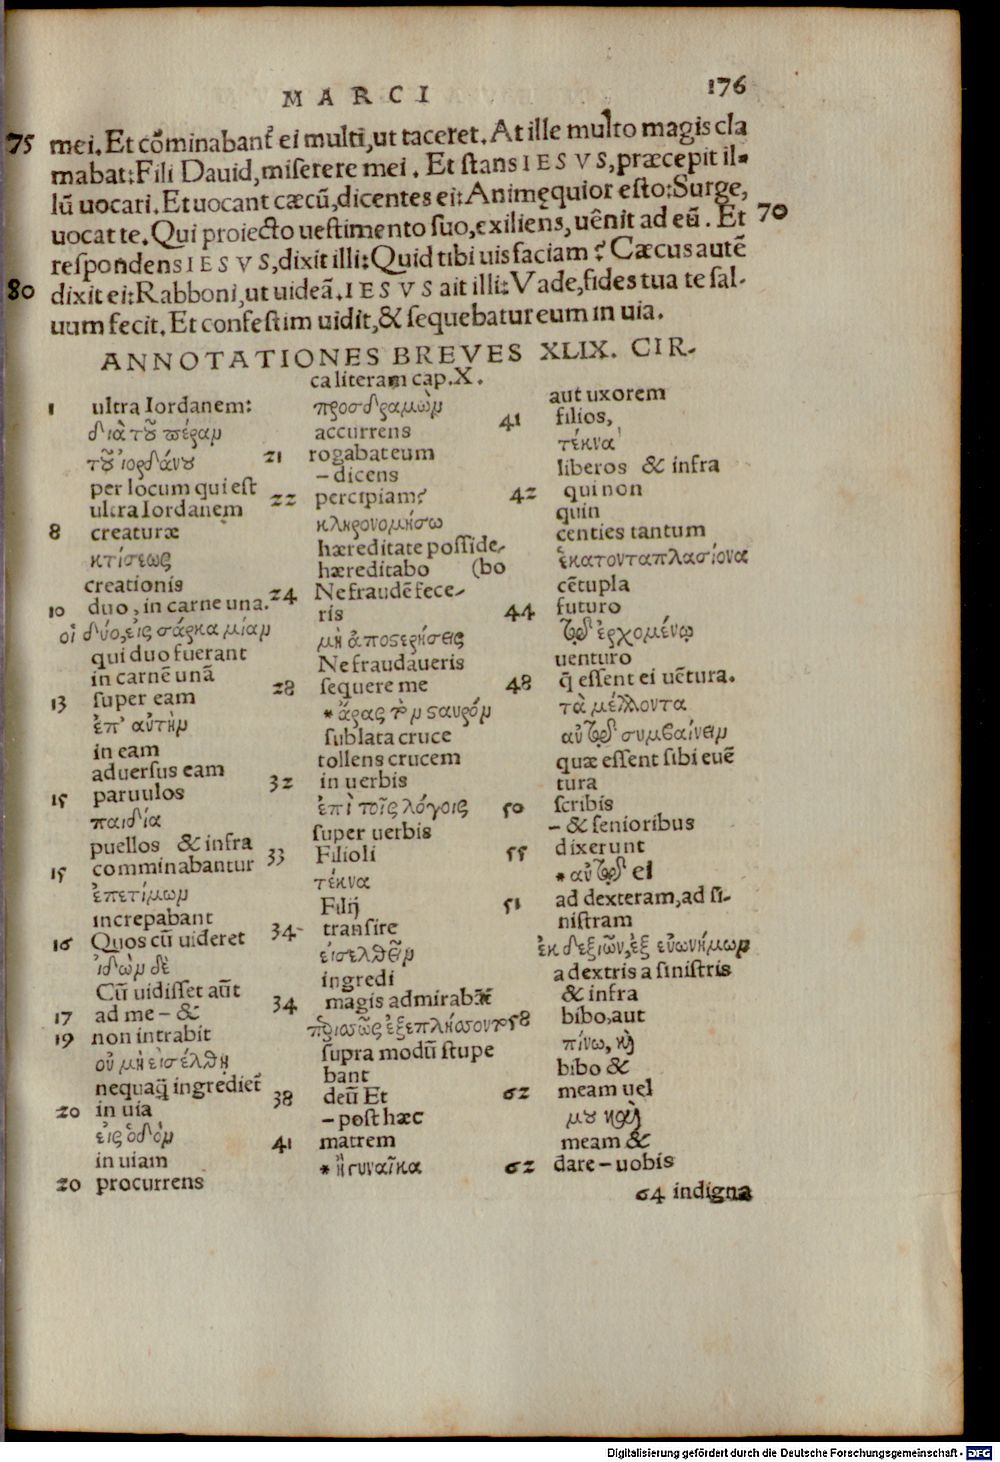 MARCI 176
75 mei. Et cōminabant᷑ ei multi, ut taceret. At ille multo magis cla
mabat: Fili Dauid, miserere mei. Et stans IESVS, præcepit il-
lū uocari. Et uocant cæcū, dicentes ei: Animęquior esto: Surge,
uocat te. Qui proiecto uestimento suo, exiliens, uēnit ad eū. Et 70
respondens IESVS, dixit illi: Quid tibi uis faciam? Cæcus autē
80 dixit ei: Rabboni, ut uideā. IESVS ait illi: Vade, fides tua te sal-
uum fecit. Et confestim uidit, & sequebatur eum in uia.
ANNOTATIONES BREVES XLIX. CIR-
ca literam cap. X.
1 ultra Iordanem:
διὰ τοῦ πέραν
τοῦ ἰορδάνου
per locum qui est
ultra Iordanem
8 creaturæ
κτίσεως
creationis
10 duo, in carne una.
οἱ δύο, εἰς σάρκα μίαν
qui duo fuerant
in carnē unā
13 super eam
ἐπ' αὐτὴν
in eam
aduersus eam
15 paruulos
παιδία
puellos & infra
15 comminabantur
ἐπετίμων
increpabant
16 Quos cū uideret
ἰδὼν δὲ
Cū uidisset aūt
17 ad me – &
19 non intrabit
οὐ μὴ εἰσέλθῃ
nequaq̄ ingrediet᷑
20 in uia
εἰς ὁδὸν
in uiam
20 procurrens
προσδραμὼν
accurrens
21 rogabat eum
– dicens
22 percipiam?
κληρονομήσω
hæreditate posside-
hæreditabo (bo
24 Ne fraudē fece-
ris
μὴ ἀποστερήσεις
Ne fraudaueris
28 sequere me
* ἄρας τὸν σταυρόν
sublata cruce
tollens crucem
32 in uerbis
ἐπὶ τοῖς λόγοις
super uerbis
33 Filioli
τέκνα
Filij
34 transire
εἰσελθεῖν
ingredi
34 magis admirabāt᷑
περισσῶς ἐξεπλήσσοντο
supra modū stupe
bant
38 deū Et
– post hæc
41 matrem
* ἢ γυναῖκα
aut uxorem
41 filios,
τέκνα
liberos & infra
42 qui non
quin
centies tantum
ἑκατονταπλασίονα
cētupla
44 futuro
τῷ ἐρχομένῳ
uenturo
48 q̄ essent ei uētura.
τὰ μέλλοντα
αὐτῷ συμβαίνειν
quæ essent sibi euē
tura
50 scribis
– & senioribus
55 dixerunt
* αὐτῷ ei
51 ad dexteram, ad si-
nistram
ἐκ δεξιῶν, ἐξ εὐωνήμων
a dextris a sinistris
& infra
58 bibo, aut
πίνω, καὶ
bibo &
62 meam uel
μου καὶ
meam &
62 dare – uobis
64 indigna
Digitalisierung gefördert durch die Deutsche Forschungsgemeinschaft - DFG